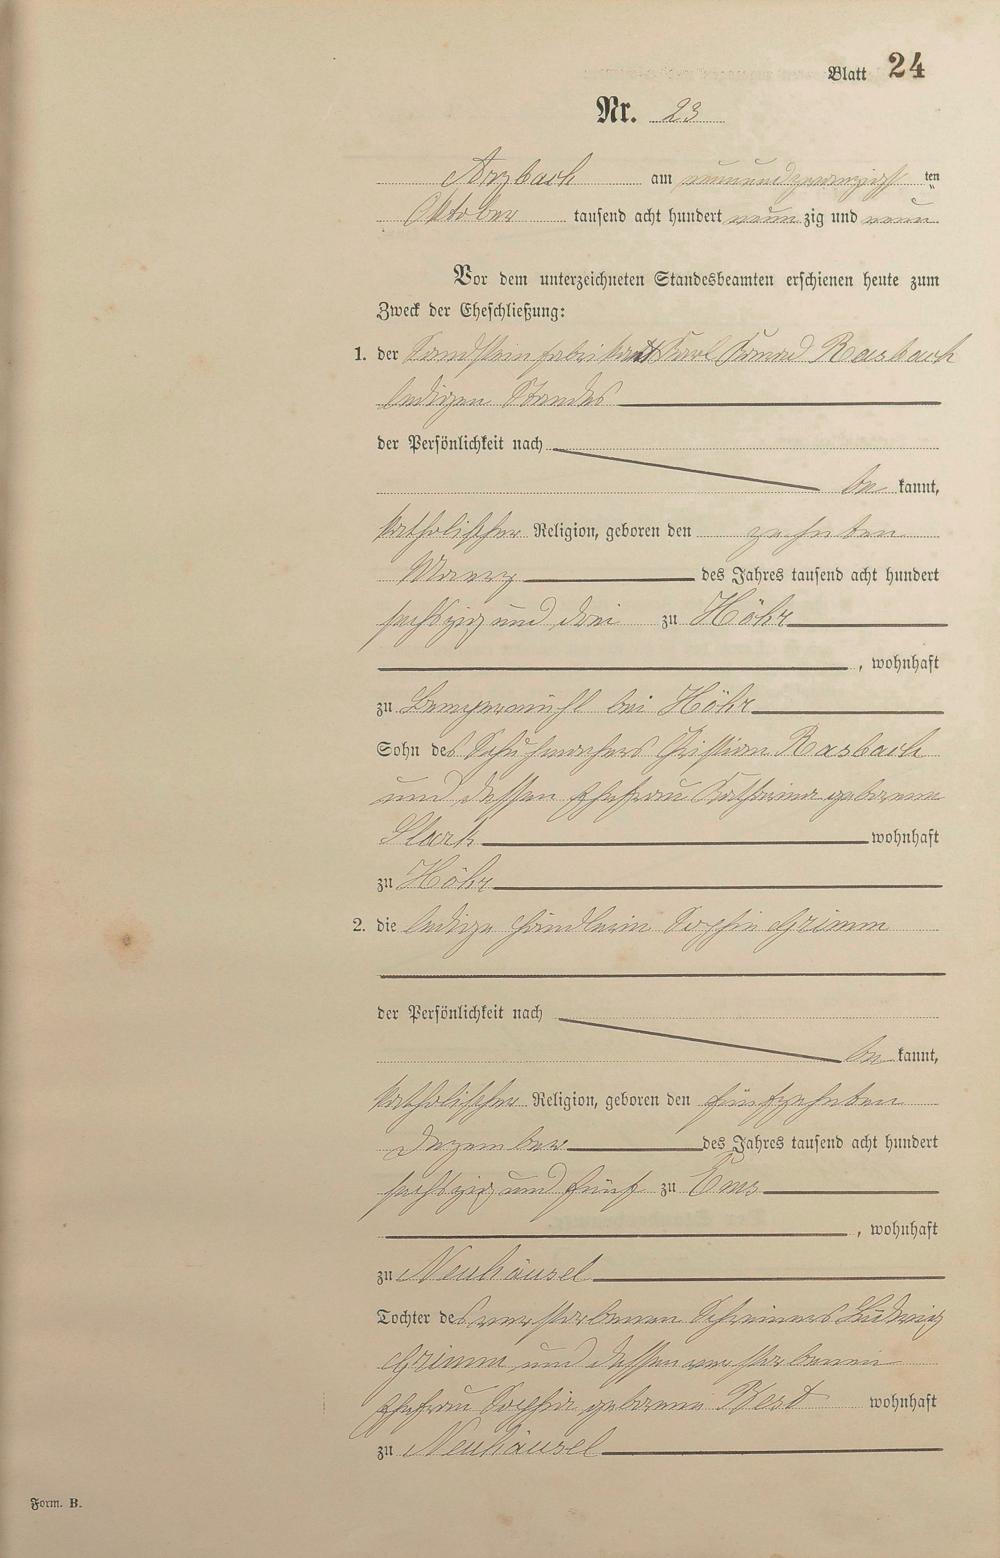 Blatt 24
Nr. 23
Arzbach am neunundzwanzigsten
Oktober tausend acht hundert neunzig und neun
Vor dem unterzeichneten Standesbeamten erschienen heute zum
Zweck der Eheschließung:
1. der Sandsteinfabrikant Karl Konrad Rasbach
ledigen Standes
der Persönlichkeit nach
bekannt,
katholischer Religion, geboren den zehnten
Maerz des Jahres tausend acht hundert
sechszig und drei zu Höhr
, wohnhaft
zu bei Höhr
Sohn des Schuhmachers Christian Rasbach
und dessen Ehefrau Katharina geborene
wohnhaft
zu Höhr
2. die ledige Händlerin Sophie Grimm
der Persönlichkeit nach
bekannt,
katholischer Religion, geboren den fünfzehnten
Dezember des Jahres tausend acht hundert
sechszig und fünf zu Ems
, wohnhaft
zu Neuhäusel
Tochter des verstorbenen Schreiners Ludwig
Grimm und dessen verstorbenen
Ehefrau Sophia geborene Best wohnhaft
zu Neuhäusel
Form. B.